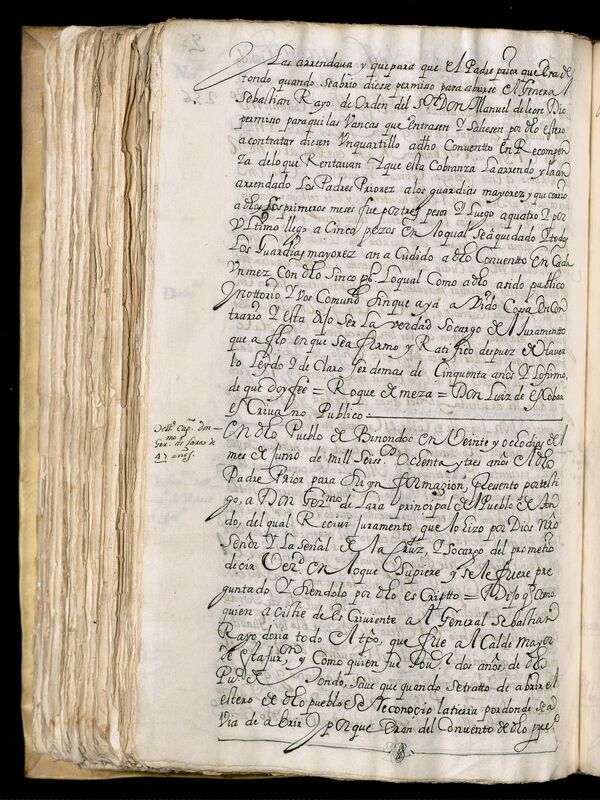 Las arrendava y que para que el Padre prior que era de
tondo quando se abrio diese permiso para abrirse el General
Sebastian Rayo de orden del Sor Don Manuel de leon Dio
permiso para qui las Vancas que entrasen y saliesen por dho estero
a contratar diesen un quartillo a dho Conventto En Recompen
sa de lo que Rentauan y que esta Cobranza la arrendo y la an
arrendado Los Padres Priorez a los guardias mayorez y que corrio
a dhos los primeros meses fue por tres pesos y luego a quatro y por
Ultimo llego a Cinco pezos en lo qual se a quedado y todos
Los Guardias mayorez an a Cudido a dho Conventto en Cada
Un mez Con dhos Sinco ps. Lo qual Como a dho a sido publico
y nottorio y Vos Comun sin que aya a Vido Cosa En Con
trario y esta dijo ser La verdad So cargo del Juramento
que a fho en que se a firmo y Ratifico despuez de Haver
lo Leydo y de Claro ser de mas de Cinquenta años y lo firmo,
de que doy fee = Roque de meza = Don Luiz de Escobar
escrivano Publico.
Desto. Capn. don
Germo. de Lara de
47 años.
En dho Pueblo de Binondoc en Veinte y ocho dias del
mes de Junio de mill Seiss. Ochenta y tres años el dho
Padre Prior para su ign formazion, Presento por testi
go, a Don Germo de Lara principal del Pueblo de ton
do, del qual Recivi Juramento que lo hizo por Dios nro
Señor y La Señal de la Cruz, y Socargo del prometio
decir Verd. en lo que supiere y se le fuere pre
guntado y siendolo por dho es Cripto = Dijo q. Como
quien a cistio de es Criviente al General Sebastian
Rayo doria todo el tpo, que fue al Calde Mayor
de esta Jurn, y Como quien fue Gouor. dos años, de dho
Puo. de Tondo, save que quando se tratto de abrir el
estero de dho pueblo se Reconocio la tierra por donde se a
Via de abrir y por que eran del Convento de dho puo.